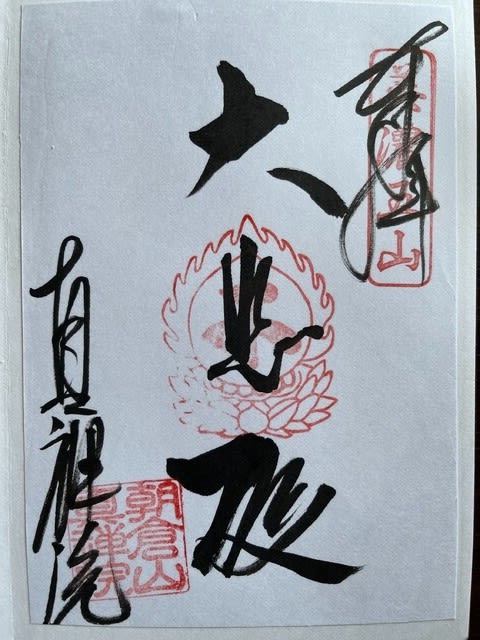 奉拝
美濃五山
大悲殿
朝倉山
真禅院
真禅院